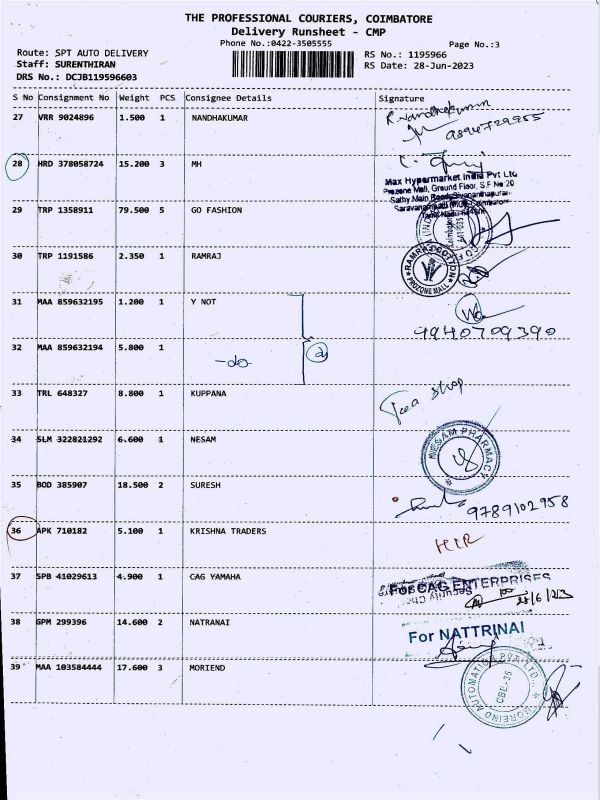 THE PROFESSIONAL COURIERS, COIMBATORE
Delivery Runsheet - CMP
Phone No.:0422-3505555
Page No.:3
Route: SPT AUTO DELIVERY
RS No.: 1195966
Staff: SURENTHIRAN
RS Date: 28-Jun-2023
DRS No.: DCJB119596603
S No Consignment No Weight PCS Consignee Details Signature
27 VRR 9024896 1.500 1 NANDHAKUMAR
R. Nandhakumar
9894729955
28 HRD 378058724 15.200 3 MH
Max Hypermarket India Pvt Ltd
Prozone Mall, Ground Floor, S.F No 20
Sathy Main Road, Sivanandhapuram
29 TRP 1358911 79.500 5 GO FASHION
30 TRP 1191586 2.350 1 RAMRAJ
RAMRAJ COTTON
PROZONE MALL
31 MAA 859632195 1.200 1 Y NOT
9940709390
32 MAA 859632194 5.800 1
-do-
33 TRL 648327 8.800 1 KUPPANA
Tea shop
34 SLM 322821292 6.600 1 NESAM
NESAM PHARMACY
35 BOD 385907 18.500 2 SURESH
9789102958
36 APK 710182 5.100 1 KRISHNA TRADERS
37 SPB 41029613 4.900 1 CAG YAMAHA
For CAG ENTERPRISES
28/6/23
38 GPM 299396 14.600 2 NATRANAI
For NATTRINAI
39 MAA 103584444 17.600 3 MORIEND
CBE-35